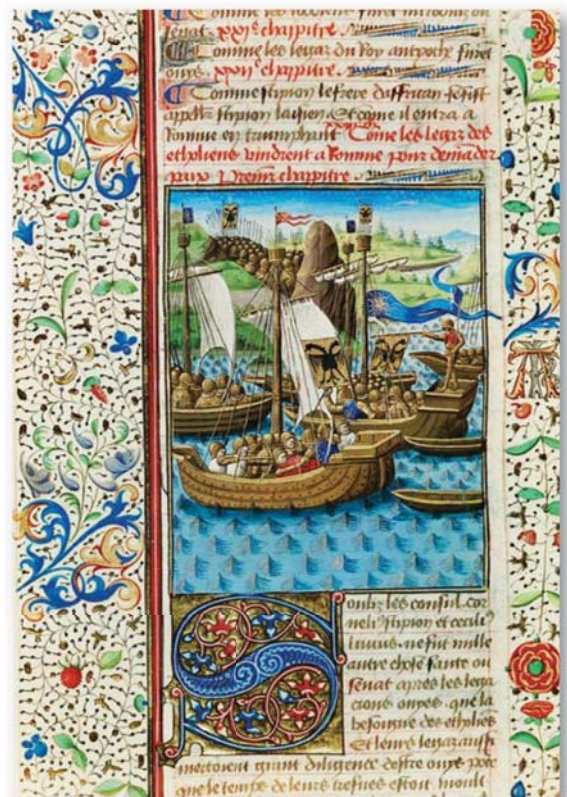 Comme les
senat. xxi.e chapitre.
Comme les legaz du Roy antioche furet
ouys. xxii.e chapitre.
Comme scipion le frere daffrican se fist
appeller scipion lasien. Et come il entra a
Romme en triumphant Come les legaz des
etholiens vindrent a Romme pour demander
paix Premier chapitre.
Soubz les consul cor
neli9 scipion et
ne fut mille
autre chose faitte ou
senat apres les lega
cions ouyes. que la
besoigne des etholies
Et leurs legaz aussi
mectoient grant diligence destre ouys pour
que le temps de leurs trefues estoit moult